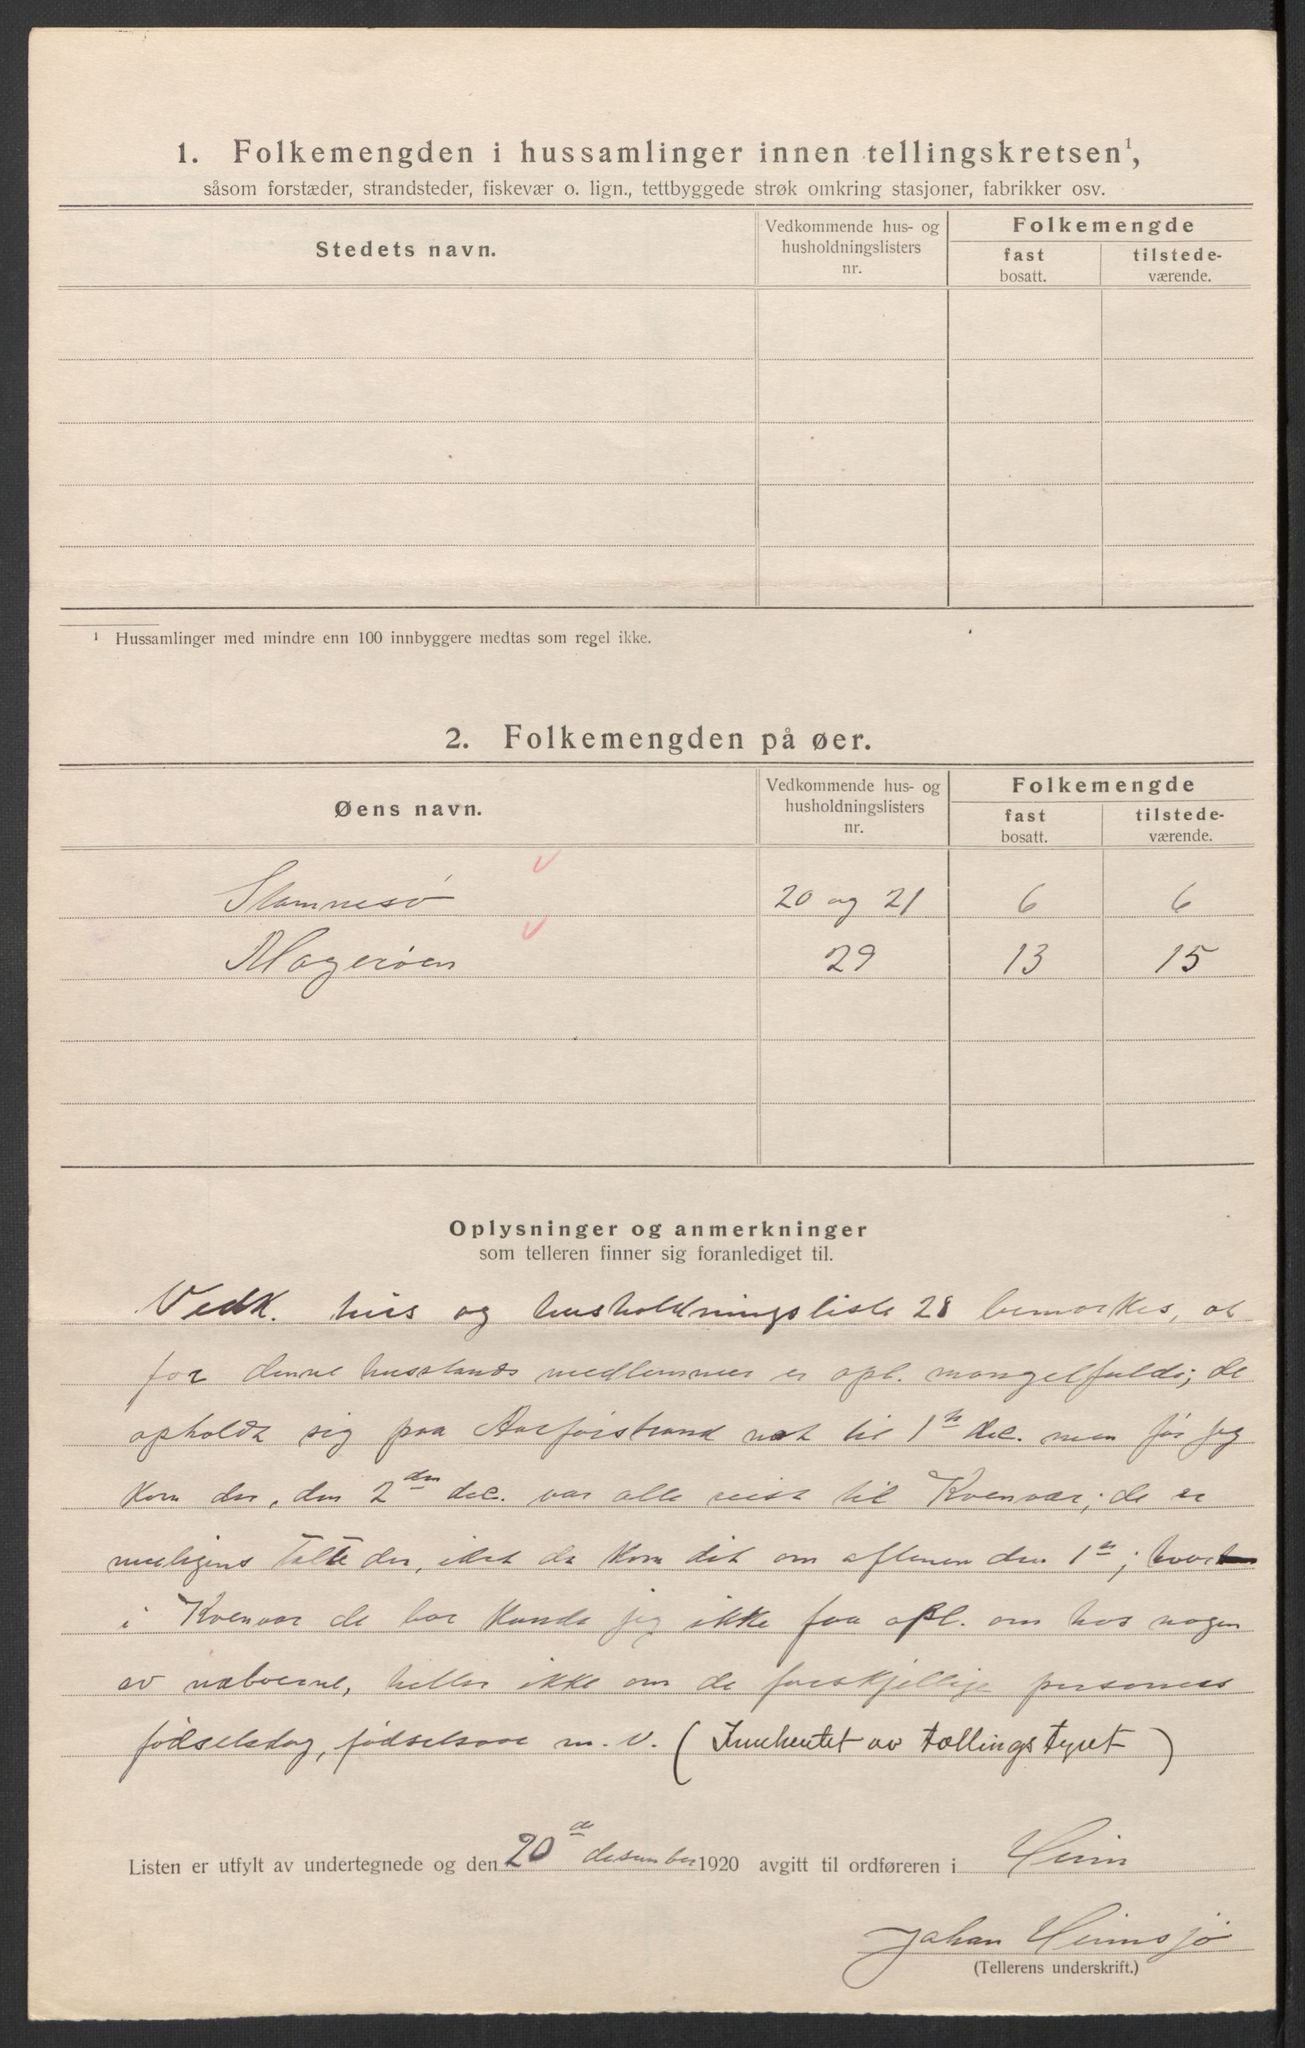 1. Folkemengden i hussamlinger innen tellingskretsen¹,
såsom forstæder, strandsteder, fiskevær o. lign., tettbyggede strøk omkring stasjoner, fabrikker osv.
Stedets navn.
Vedkommende hus- og husholdningslisters nr.
Folkemengde
fast bosatt.
tilstede-værende.
¹ Hussamlinger med mindre enn 100 innbyggere medtas som regel ikke.
2. Folkemengden på øer.
Øens navn.
Vedkommende hus- og husholdningslisters nr.
Folkemengde
fast bosatt.
tilstede-værende.
Stamnesø 20 og 21 6 6
Magerøen 29 13 15
Oplysninger og anmerkninger
som telleren finner sig foranlediget til.
Vedk. hus og husholdningsliste 28 bemerkes, at
for denne husstands medlemmer er opl. mangelfulde; de
opholdt sig paa nat til 1ste dec. men før jeg
kom der, den 2den dec. var alle reist til Kvenvær; de er
muligens talte der, idet de kom dit om aftenen den 1ste; hvor
i Kvenvær de bor kunde jeg ikke faa opl. om hos nogen
av naboerne, heller ikke om de forskjellige personers
fødselsdag, fødselsaar m. v. (Innhentet av tællingstyret)
Listen er utfylt av undertegnede og den 20de desember 1920 avgitt til ordføreren i Heim
Johan Heimsjø
(Tellerens underskrift.)